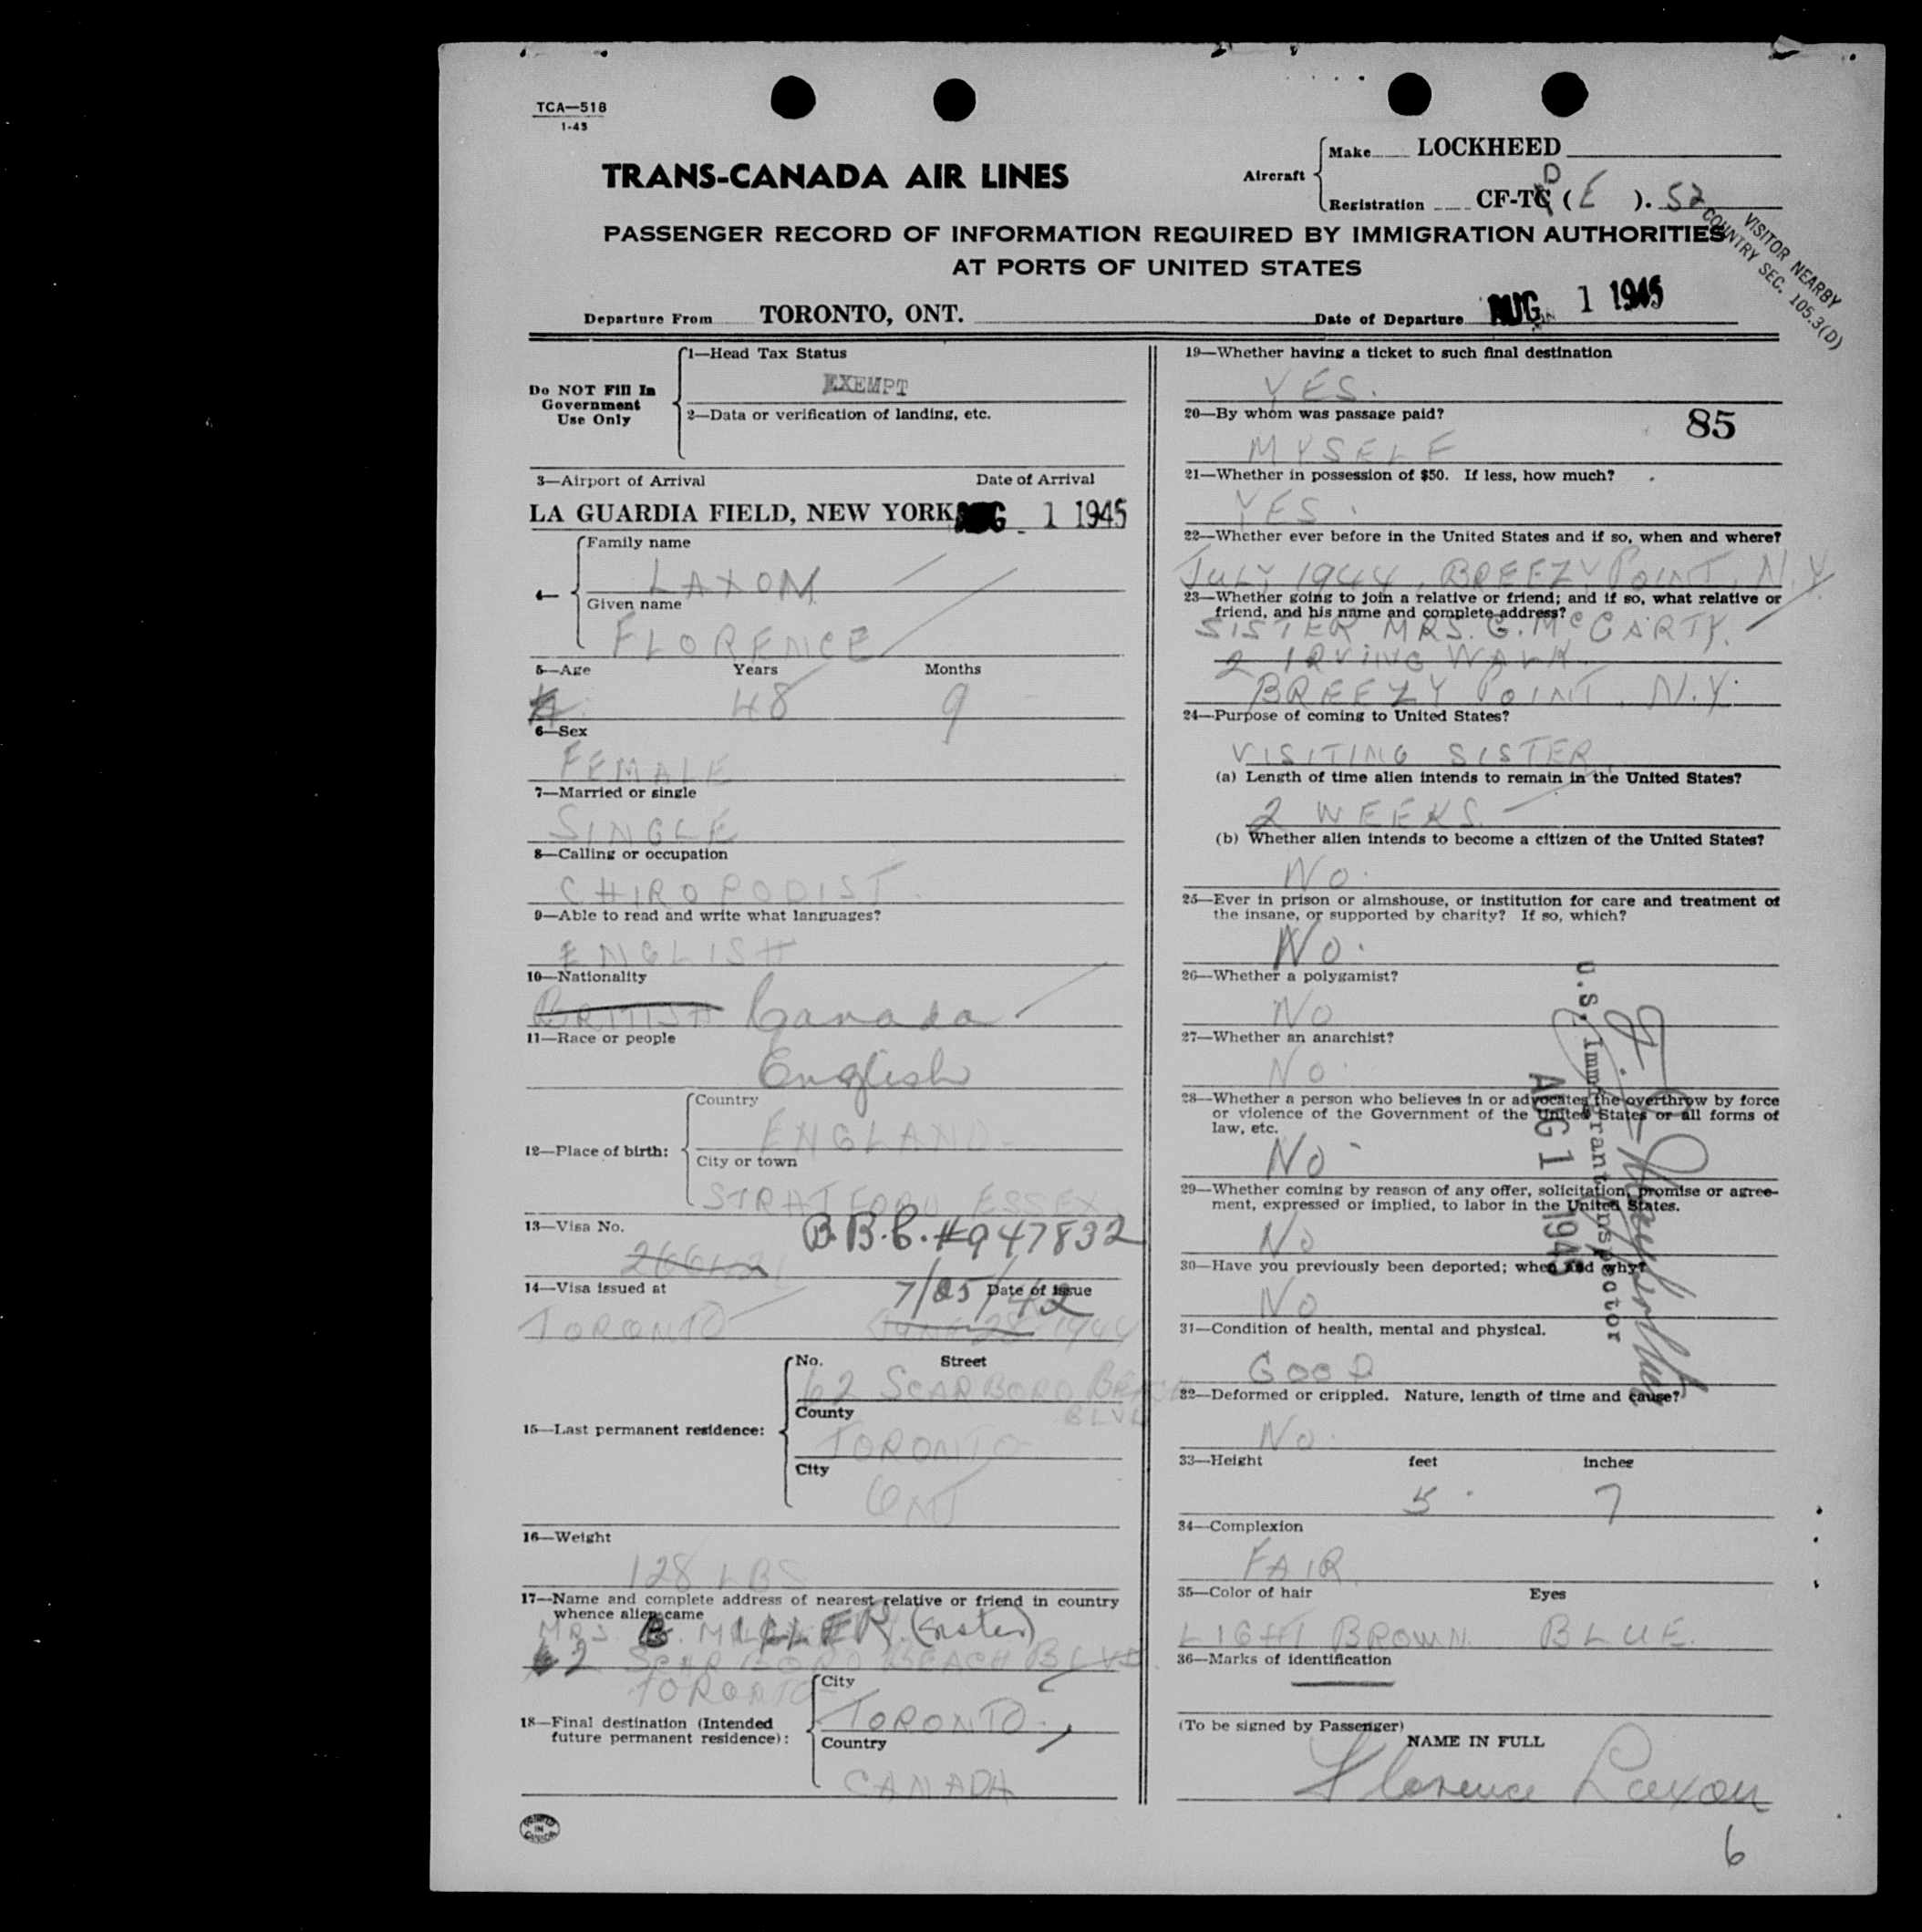 TCA—518
1-45
TRANS-CANADA AIR LINES
Aircraft
Make LOCKHEED
D
Registration CF-TC (E ). 52
VISITOR NEARBY
COUNTRY SEC. 105.3(D)
PASSENGER RECORD OF INFORMATION REQUIRED BY IMMIGRATION AUTHORITIES
AT PORTS OF UNITED STATES
Departure From TORONTO, ONT. Date of Departure AUG 1 1945
Do NOT Fill In
Government
Use Only
1—Head Tax Status
EXEMPT
2—Data or verification of landing, etc.
3—Airport of Arrival Date of Arrival
LA GUARDIA FIELD, NEW YORK AUG 1 1945
4—
Family name
LAXON
Given name
FLORENCE
5—Age Years Months
48 9
6—Sex
FEMALE
7—Married or single
SINGLE
8—Calling or occupation
CHIROPODIST.
9—Able to read and write what languages?
ENGLISH
10—Nationality
BRITISH Canada
11—Race or people
English
12—Place of birth:
Country
ENGLAND
City or town
STRATFORD ESSEX
13—Visa No. B.B.C. #947832
14—Visa issued at Date of Issue
7/25/42
TORONTO June 28 1944
15—Last permanent residence:
No. Street
62 SCARBORO BEACH
BLVD
County
TORONTO
City
ONT
16—Weight
128 LBS
17—Name and complete address of nearest relative or friend in country
whence alien came
MRS. B. MILLER (sister)
62 SCARBORO BEACH BLVD
TORONTO
18—Final destination (Intended
future permanent residence):
City
TORONTO.
Country
CANADA
PRINTED IN CANADA
19—Whether having a ticket to such final destination
YES.
20—By whom was passage paid?
85
MYSELF
21—Whether in possession of $50. If less, how much?
YES.
22—Whether ever before in the United States and if so, when and where?
JULY 1944, BREEZY POINT, N.Y.
23—Whether going to join a relative or friend; and if so, what relative or
friend, and his name and complete address?
SISTER MRS. G. McCARTY.
2 IRVING WALK.
BREEZY POINT, N.Y.
24—Purpose of coming to United States?
VISITING SISTER
(a) Length of time alien intends to remain in the United States?
2 WEEKS.
(b) Whether alien intends to become a citizen of the United States?
NO.
25—Ever in prison or almshouse, or institution for care and treatment of
the insane, or supported by charity? If so, which?
NO.
26—Whether a polygamist?
NO
27—Whether an anarchist?
NO.
28—Whether a person who believes in or advocates the overthrow by force
or violence of the Government of the United States or all forms of
law, etc.
NO
29—Whether coming by reason of any offer, solicitation, promise or agree-
ment, expressed or implied, to labor in the United States.
NO
30—Have you previously been deported; when and why?
NO
31—Condition of health, mental and physical.
GOOD
32—Deformed or crippled. Nature, length of time and cause?
NO.
33—Height feet inches
5 7
34—Complexion
FAIR
35—Color of hair Eyes
LIGHT BROWN. BLUE.
36—Marks of identification
U.S. Immigrant Inspector
AUG 1 1945
(To be signed by Passenger)
NAME IN FULL
Florence Laxon
6